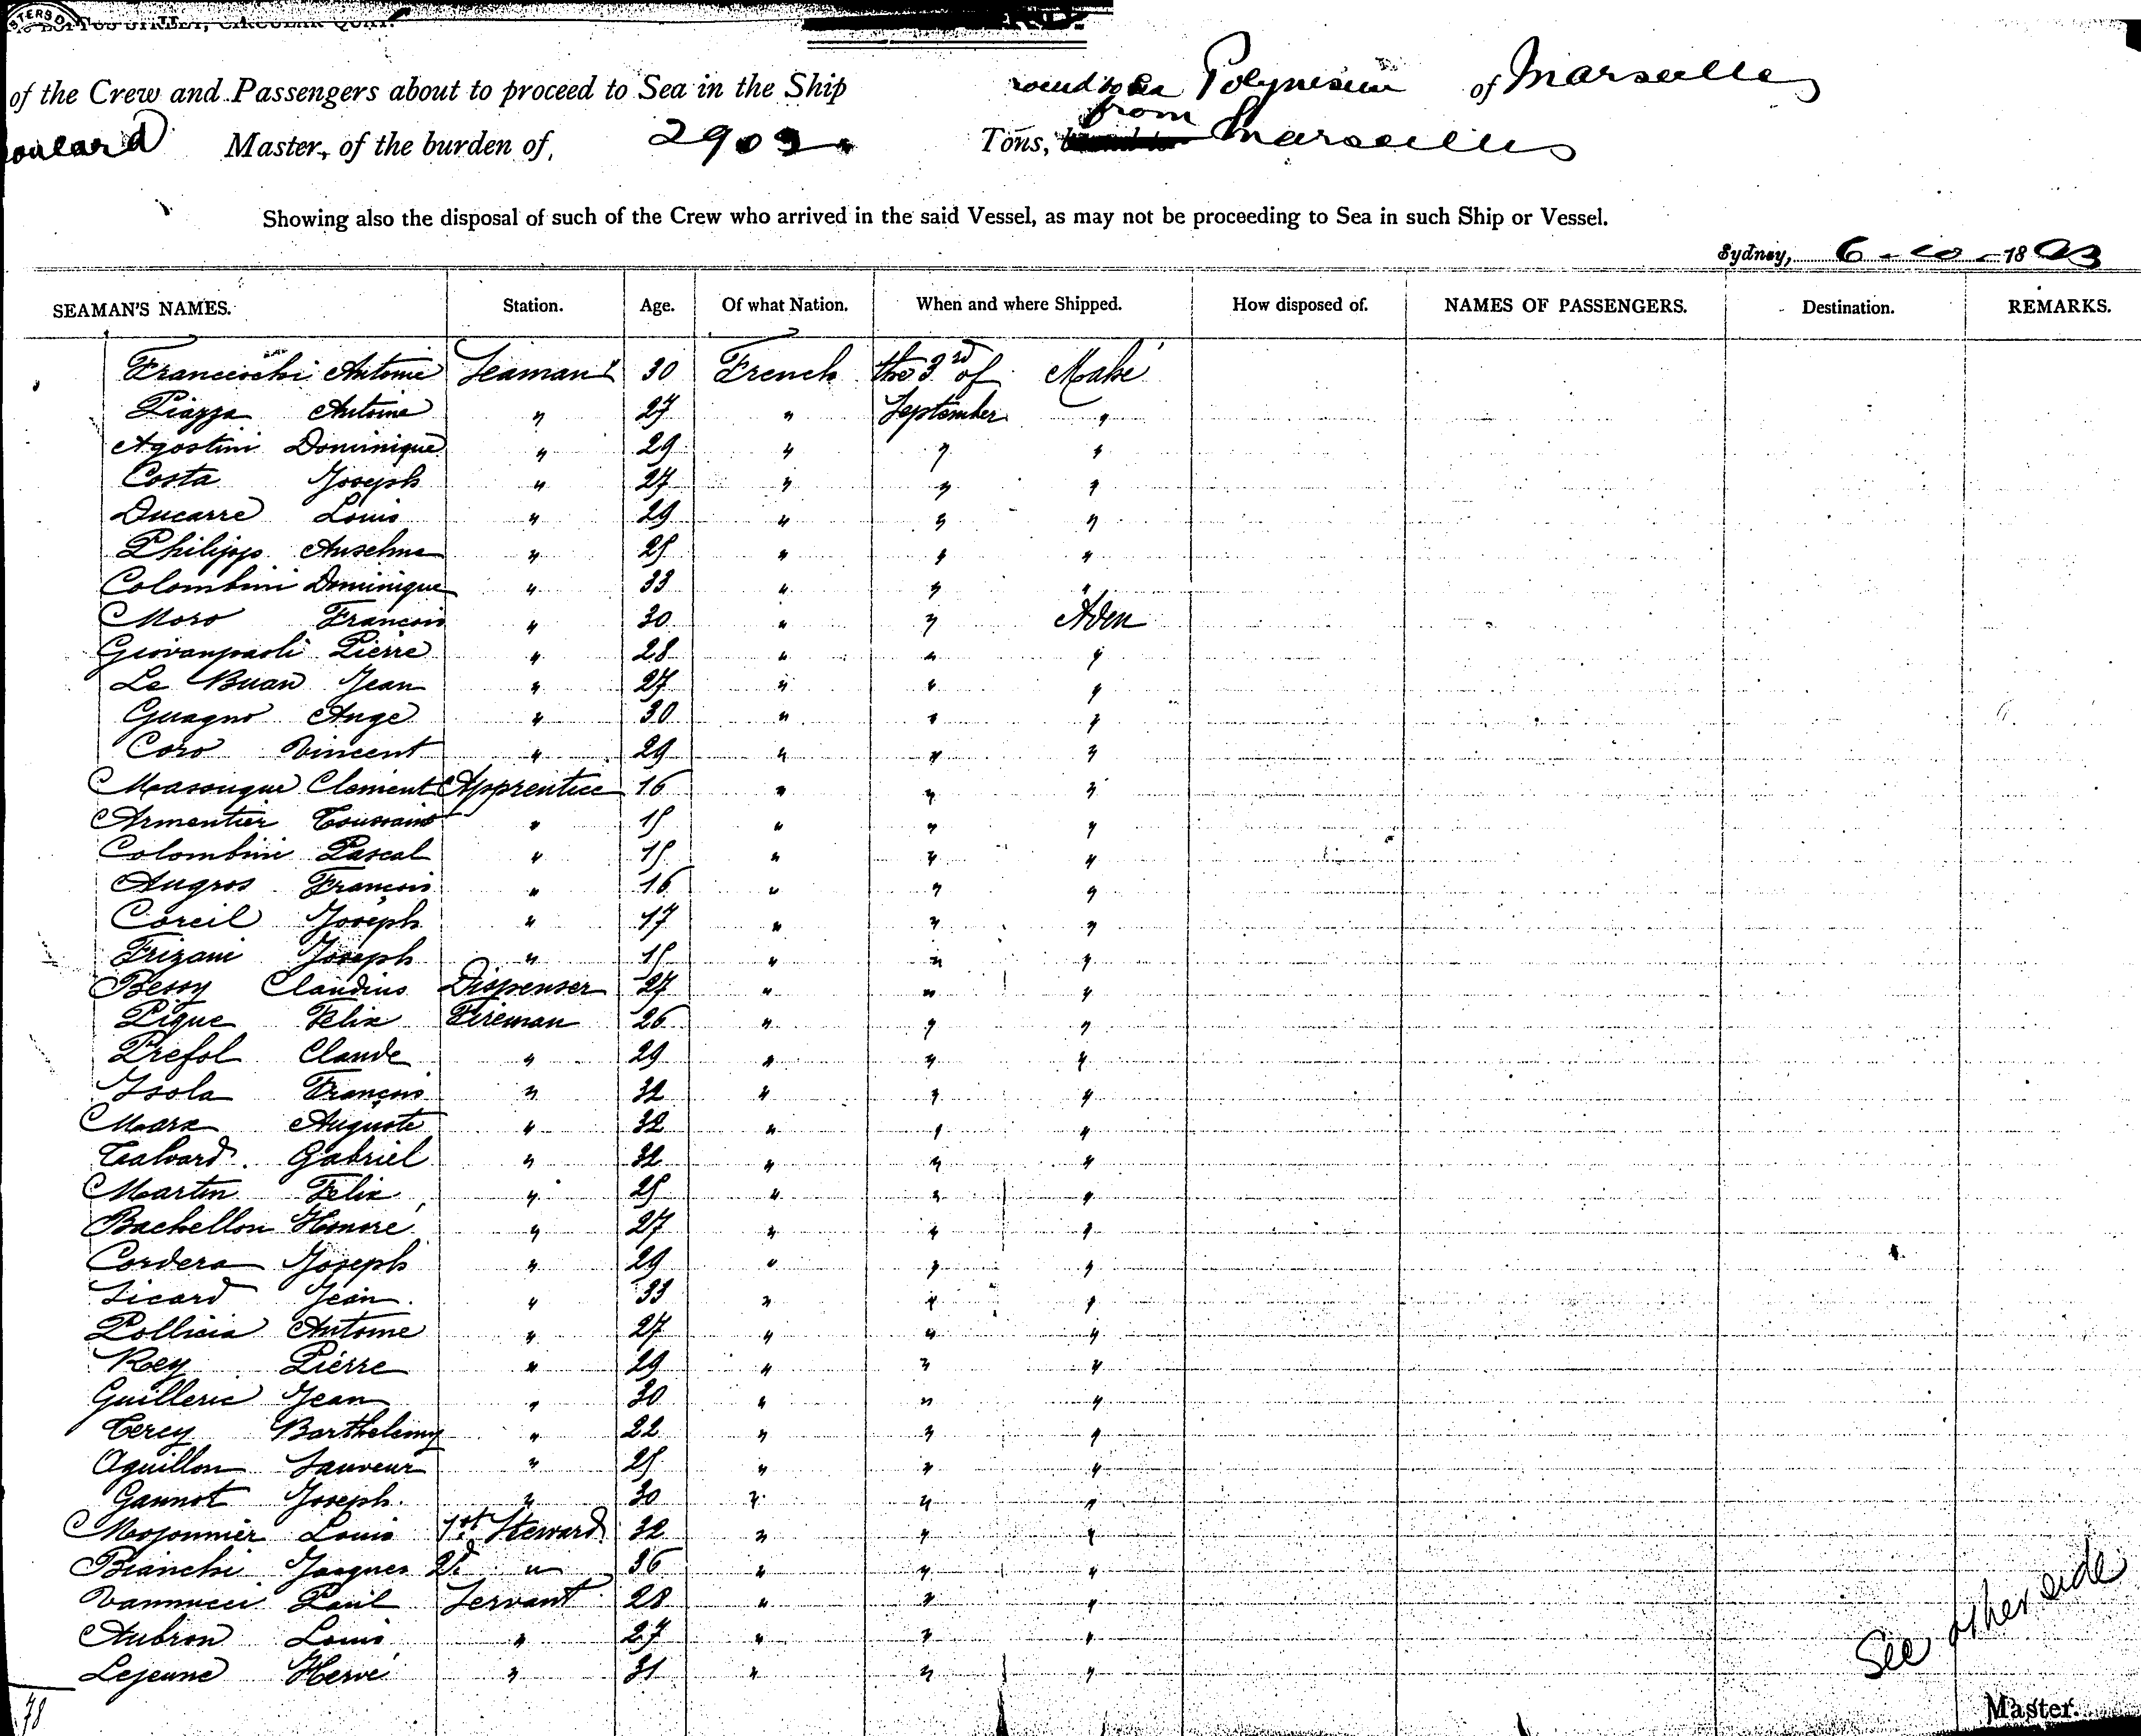 of the Crew and Passengers about to proceed to Sea in the Ship Polynesien of Marseilles
Master, of the burden of, 2909 Tons, from Marseilles
Showing also the disposal of such of the Crew who arrived in the said Vessel, as may not be proceeding to Sea in such Ship or Vessel.
Sydney, 6 - 10 - 1893
SEAMAN'S NAMES. Station. Age. Of what Nation. When and where Shipped. How disposed of. NAMES OF PASSENGERS. Destination. REMARKS.
Franceschi Antoine Seaman 30 French the 3rd of Mahé
Piazza Antoine " 27 " September "
Agostini Dominique " 29 " " "
Costa Joseph " 27 " " "
Ducarre Louis " 29 " " "
Philipp Anselme " 25 " " "
Colombini Dominique " 33 " " "
Moro Francois " 30 " " Aden
Giovanpaoli Pierre " 28 " " "
Le Buan Jean " 27 " " "
Guagno Ange " 30 " " "
Coro Vincent " 29 " " "
Clement Apprentice 16 " " "
Armentier Toussaint " 15 " " "
Colombini Pascal " 15 " " "
Augros François " 16 " " "
Coreil Joseph " 17 " " "
Frizani Joseph " 15 " " "
Bessy Claudius Dispenser 27 " " "
Pique Felix Fireman 26 " " "
Prefol Claude " 29 " " "
Isola François " 32 " " "
Marx Auguste " 32 " " "
Talvard Gabriel " 32 " " "
Martin Felix " 25 " " "
Bachellon Honoré " 27 " " "
Cordera Joseph " 29 " " "
Sicard Jean " 33 " " "
Antoine " 27 " " "
Rey Pierre " 29 " " "
Guilleric Jean " 30 " " "
Tercy Barthelemy " 22 " " "
Aguillon Sauveur " 25 " " "
Gannot Joseph " 30 " " "
Mojonnier Louis 1st Steward 32 " " "
Bianchi Jacques 2d " 36 " " "
Vannucci Paul Servant 28 " " "
Aubron Louis " 27 " " "
Lejeune Hervé " 31 " " "
See other side
78
Master.